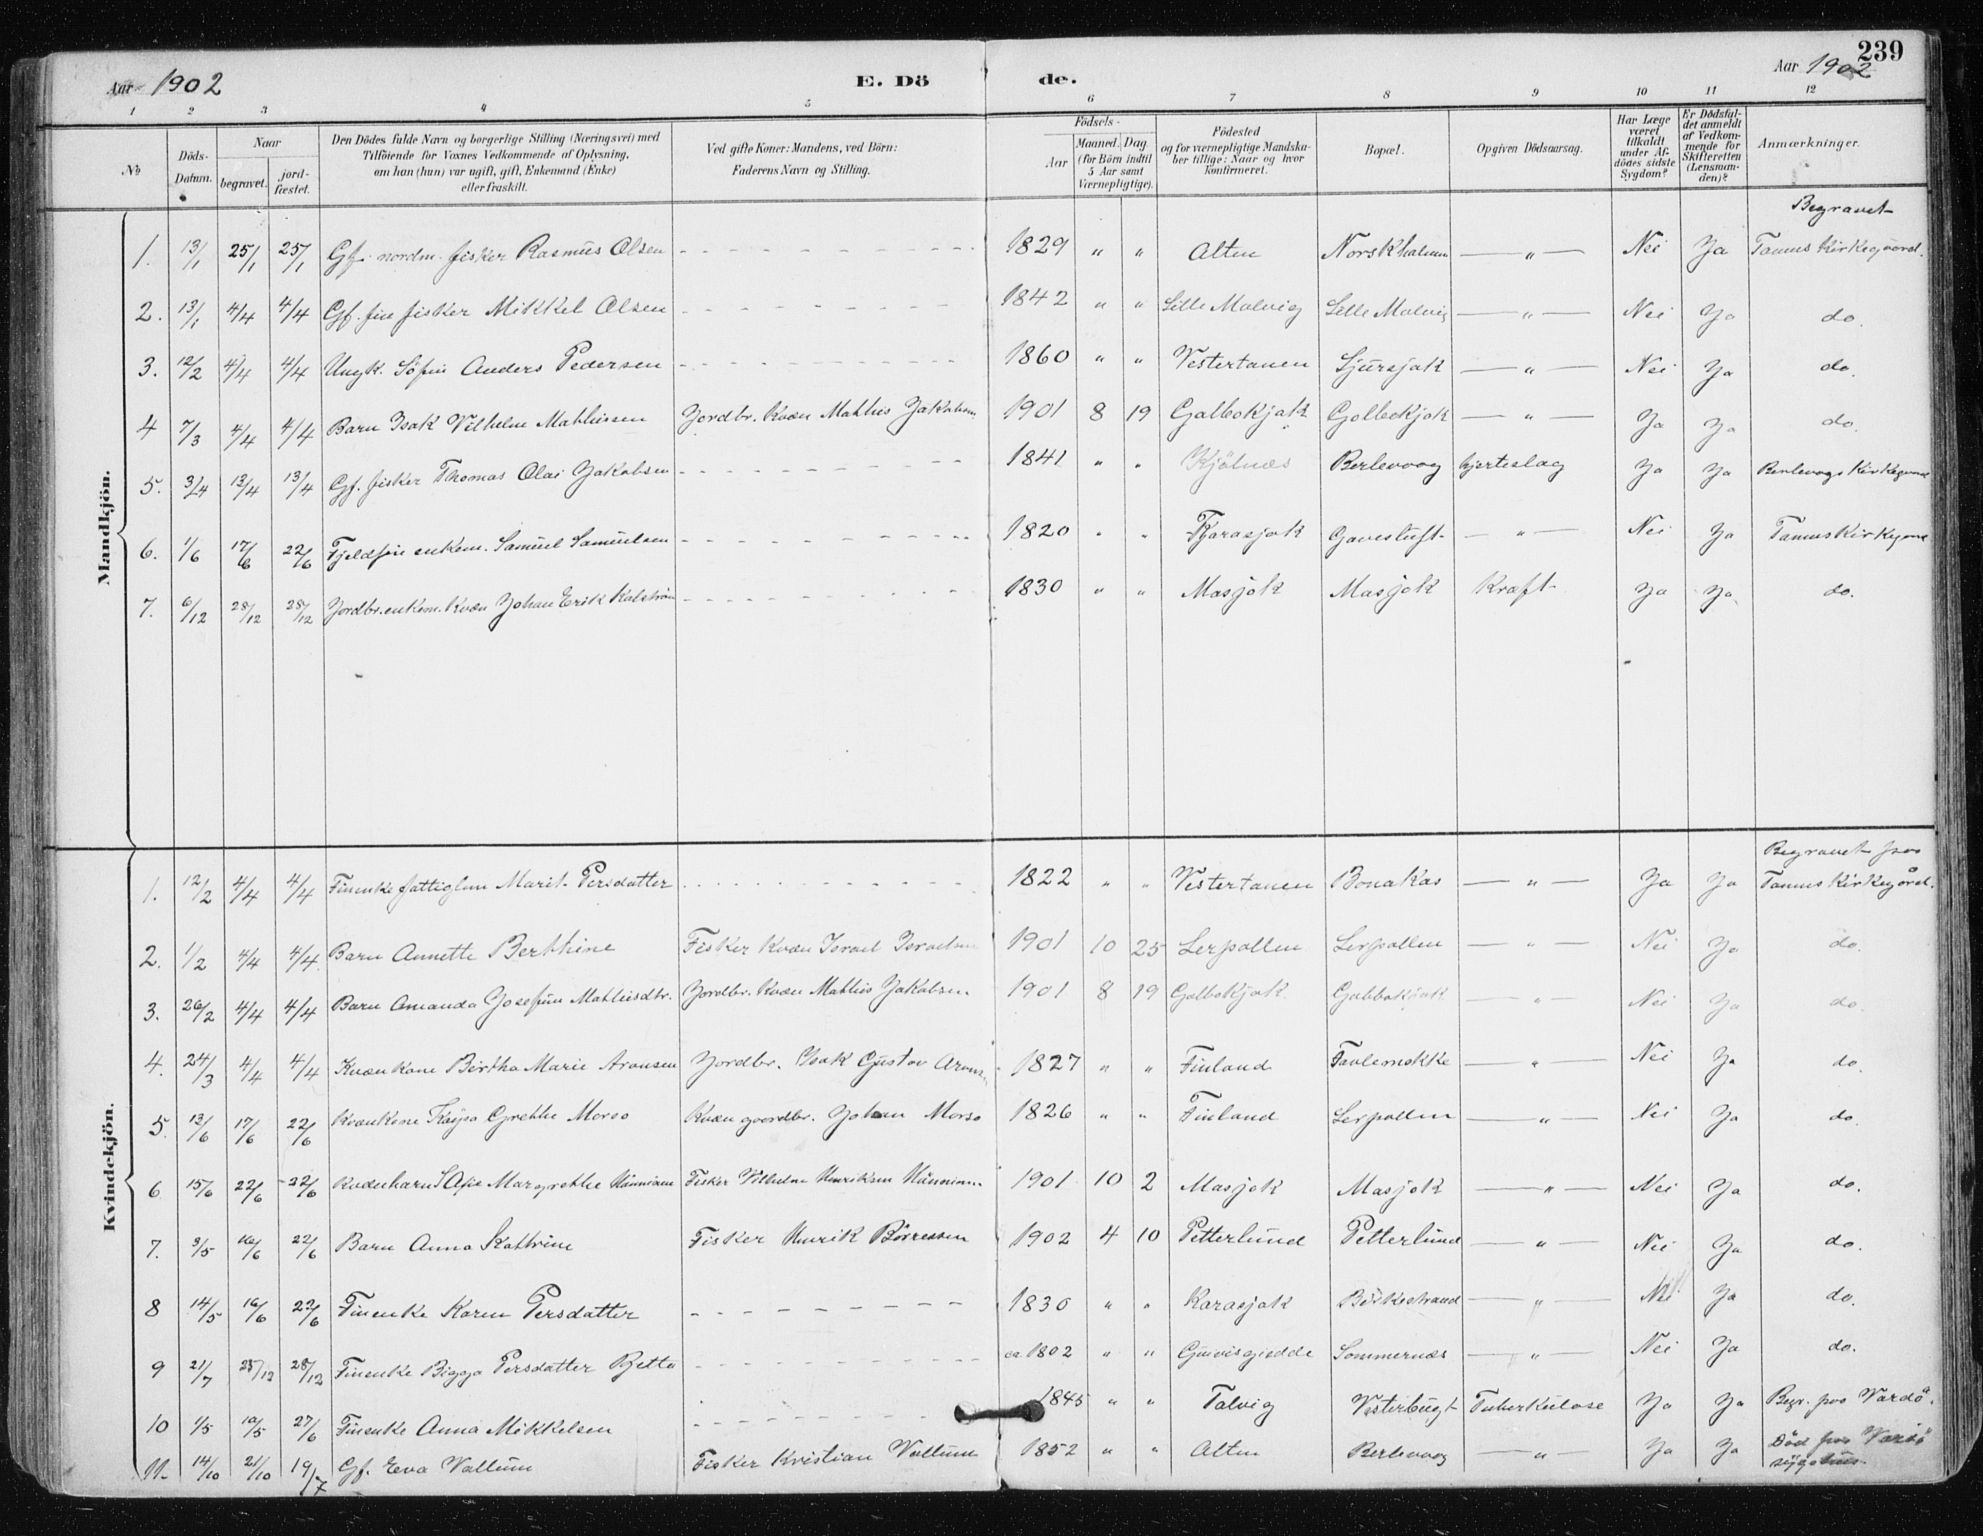 239
Aar 1902 E. Döde. Aar 1902
1 2 3 4 5 6 7 8 9 10 11 12
No Döds-Datum. Naar begravet. jord-fæstet. Den Dödes fulde Navn og borgerlige Stilling (Næringsvei) med Tilföiende for Voxnes Vedkommende af Oplysning, om han (hun) var ugift, gift, Enkemand (Enke) eller fraskilt. Ved gifte Koner: Mandens, ved Börn: Faderens Navn og Stilling. Födsels- Aar Maaned. Dag. (for Börn indtil 5 Aar samt Værnepligtige). Födested og for værnepligtige Mandskaber tillige: Naar og hvor konfirmeret. Bopæl. Opgiven Dödsaarsag. Har Læge været tilkaldt under Afdödes sidste Sygdom? Er Dödsfaldet anmeldt af Vedkommende for Skifteretten (Lensmanden)? Anmærkninger.
Mandkjön.
Begravet
1. 13/1 25/1 25/1 Gf. nordm. fisker Rasmus Olsen 1829 " " Alten Norskholmen — " — Nei Ja Tanus Kirkegaard.
2. 13/1 4/4 4/4 Gf. fin fisker Mikkel Olsen 1842 " " Lille Molvig Lille Molvig — " — Nei Ja do.
3. 12/2 4/4 4/4 Ungk. Söfin Anders Pedersen 1860 " " Vestertanen — " — Nei Ja do.
4 7/3 4/4 4/4 Barn Isak Vilhelm Mathisen Jordbr. Kvæn Mathis Jakobsen 1901 8 19 Galbokjok Golbokjok — " — Ja Ja do.
5. 3/4 13/4 13/4 Gf. fisker Thomas Olai Jakobsen 1841 " " Kjölnes Berlevaag hjerteslag Ja Ja Berlevogs Kirkegaard
6. 1/6 17/6 22/6 Fjeldfin enkem. Samuel Samuelsen 1820 " " Karasjok Gavesluft — " — Nei Ja Tanus Kirkegaard
7. 6/12 28/12 28/12 Jordbr. enkem. Kvæn Johan Erik Kalström 1830 " " Masjok Masjok Kræft Ja Ja do.
Kvindekjön.
Begravet paa
1. 12/2 4/4 4/4 Finenke fattiglem Marit Persdatter 1822 " " Vestertanen Bonakas — " — Ja Ja Tanus Kirkegård.
2. 1/2 4/4 4/4 Barn Annette Berthine Fisker Kvæn Israel Israelsen 1901 10 25 Lerpollen Lerpollen — " — Nei Ja do.
3. 26/2 4/4 4/4 Barn Amanda Josefine Mathisdtr. Jordbr. Kvæn Mathis Jakobsen 1901 8 19 Galbokjok Gobbokjok — " — Nei Ja do.
4. 24/3 4/4 4/4 Kvænkone Birtha Marie Aronsen Jordbr. Isak Gustav Aronsen 1827 " " Finland — " — Nei Ja do.
5. 13/6 17/6 22/6 Kvænkone Kaysa Grethe Morso Kvæn goordbr. Johan Morso 1826 " " Finland Lerpollen — " — Nei Ja do.
6 15/6 22/6 22/6 Kvænbarn Sofie Margrethe Hänninen Fisker Vilhelm Henriksen Hänninen 1901 10 2 Masjok Masjok — " — Nei Ja do.
7. 3/5 16/6 22/6 Barn Anna Kathrine Fisker Henrik Börressen 1902 4 10 Petterlund Petterlund — " — Nei Ja do.
8 14/5 16/6 22/6 Finenke Karen Persdatter 1830 " " Karasjok Birkestrand — " — Nei Ja do.
9 21/7 28/12 28/12 Finenke Bigga Persdatter Bjetto ca 1802 " " Sommernæs — " — Nei Ja do.
10 1/5 10/5 27/6 Finenke Anna Mikkelsen 1845 " " Talvig Vesterbugt Tuberkulose Ja Ja Begr. paa Vardö.
11. 14/10 21/10 19/7 Gf. Eva Wallum Fisker Kristian Wallum 1852 " " Alten Berlevaag " Ja Ja Död paa Vardö sygehus.